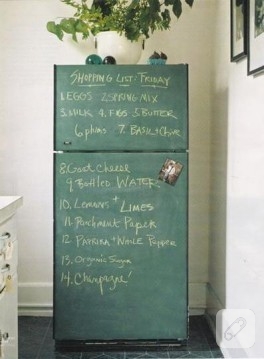 SHOPPING LIST/FRIDAY
1.EGGS 2.SPRING MIX
3.MILK 4. FIGS 5.BUTTER
6 plums 7. BASIL + Chive
8.Goat Cheese
9.Bottled WATER
10. LEMONS + LIMES
11. Parchment Paper
12. PAPRIKA + WHITE PEPPER
13. Organic Sugar
14. Champagne!